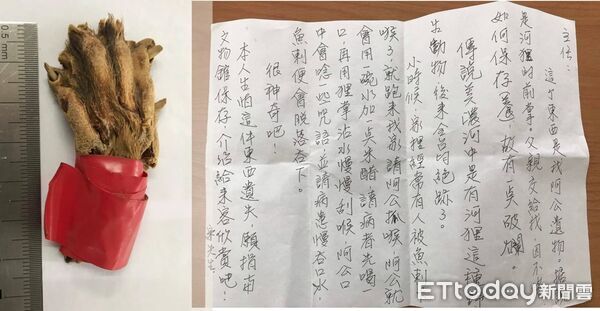 0.5 mm
主任：
這个東西是我阿公遺物，據說
是河狸的前掌。父親交給我，因不知
如何保存養，故有奌破爛。
傳說美濃河中是有河狸這種野
生動物後來全皆絕跡了。
小時候，家裡經常有人被魚刺
喉了就跑來我家請阿公喉，阿公就
會用碗水加奌米醋請病者先喝一
口，再用狸掌沾水慢慢刮喉，阿公口
中會唸一些咒語並請病患慢吞口水，
魚刺便會脫落吞下。
很神奇吧！
本人生怕這件東西遺失，願捐南
文物館保存，介紹給來客欣賞吧！
宋先生
ETtoday新聞雲